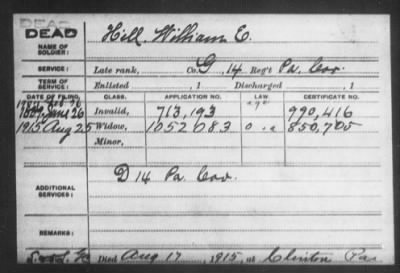 DEAD
DEAD
NAME OF SOLDIER:
Hill, William E.
SERVICE:
Late rank, Co. G, 14 Reg't Pa. Cav.
TERM OF SERVICE:
Enlisted , 1 Discharged , 1
DATE OF FILING. CLASS. APPLICATION NO. LAW. CERTIFICATE NO.
1889 June 26 Invalid, 713,193 age 990,416
1915 Aug 25 Widow, 1052083 o. a 850,705
Minor,
ADDITIONAL SERVICES:
D 14 Pa Cav.
REMARKS:
Died Aug 17, 1915, at Clinton Pa